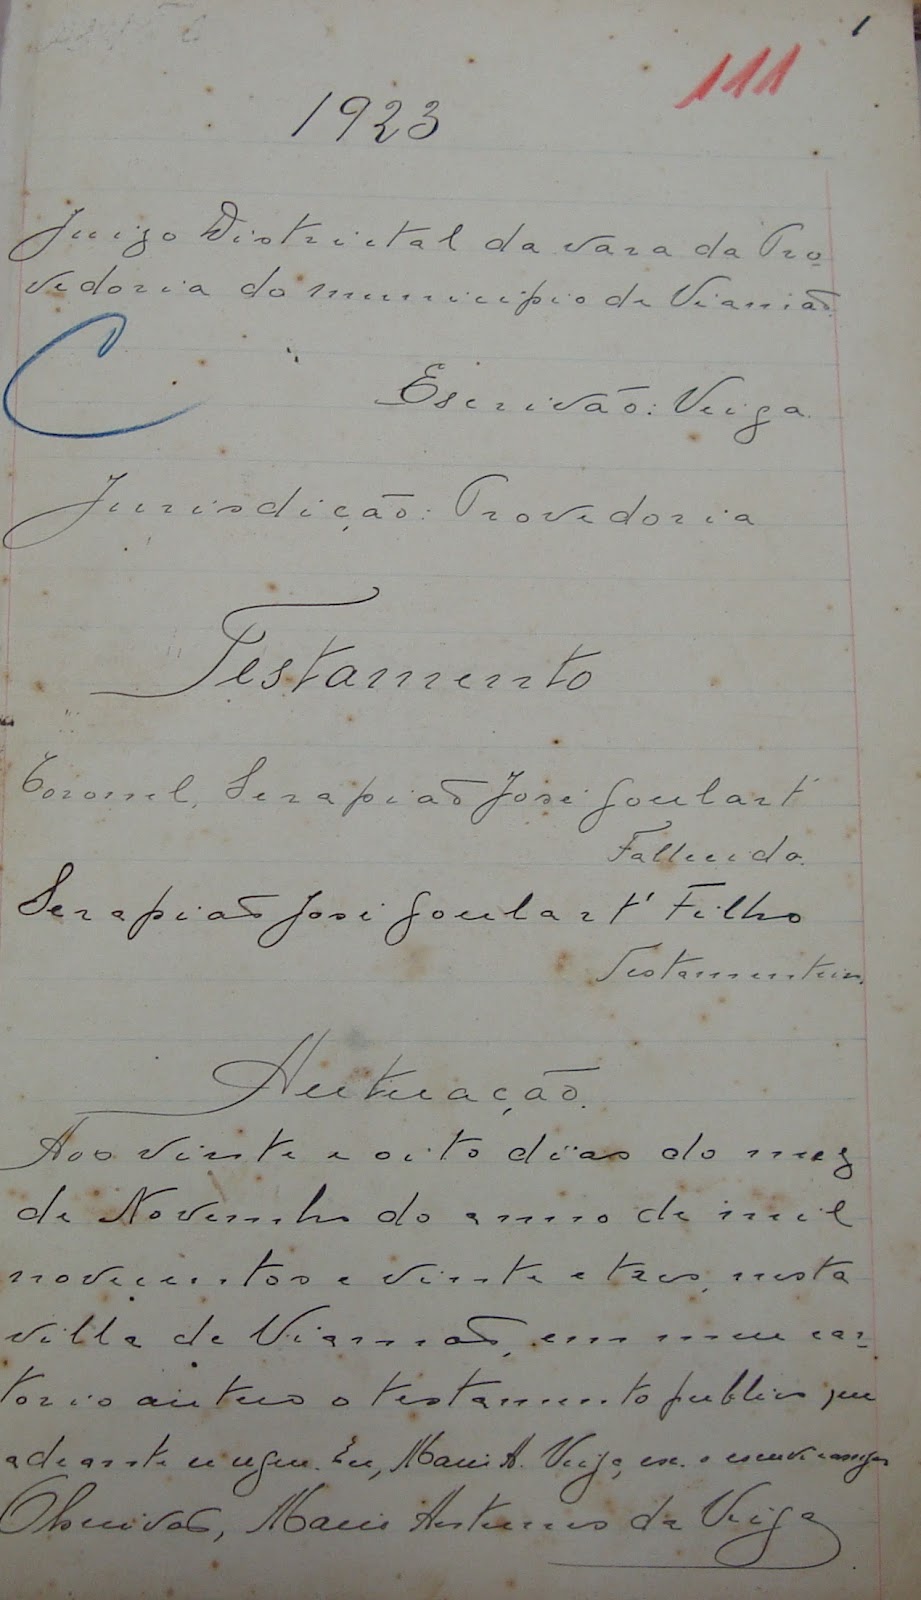 1
111
1923
Juizo Districtal da vara da Pro-
vedoria do municipio de Viamão.
Escrivão: Veiga.
Jurisdicção: Provedoria
Testamento
Coronel, Serapião José Goulart
Fallecido.
Serapião José Goulart Filho
Testamenteiro.
Autuação.
Aos vinte e oito dias do mez
de Novembro do anno de mil
novecentos e vinte e tres, nesta
villa de Viamão, em meu car-
torio autuo o testamento publico que
adeante se segue. Eu, Mario A. Veiga, esc. o escrevi e assigno
O Escrivão, Mario Antunes da Veiga